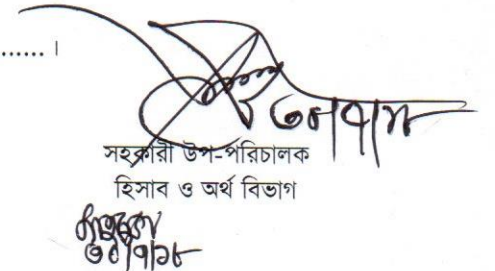 ...... ।
৩০/৭/১৮
সহকারী উপ-পরিচালক
হিসাব ও অর্থ বিভাগ
৩০/৭/১৮